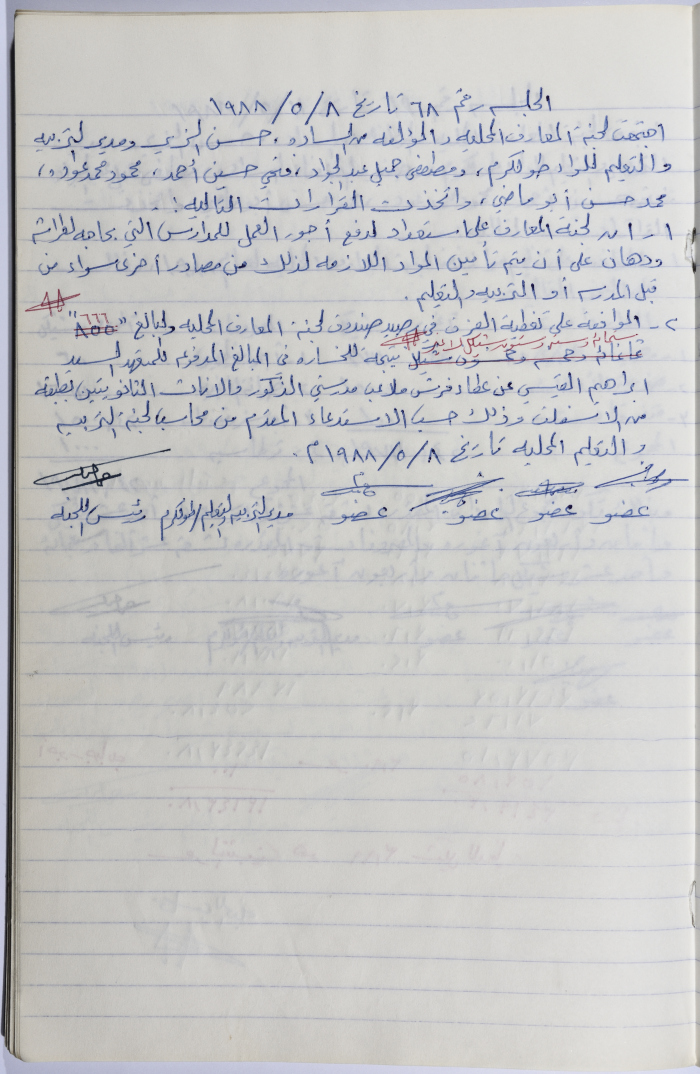 الجلسه رقم ٦٨ تاريخ ٨/٥/١٩٨٨
اجتمعت لجنة المعارف المحليه والمؤلفه من الساده، حسن ومدير التربيه
والتعليم للواء طولكرم، ومصطفى جميل عبد الجواد، فتحي حسين أحمد، محمود محمد عوده،
محمد حسن أبو ماضي، واتخذت القرارات التاليه:
١- ان لجنة المعارف على استعداد لدفع أجور العمل للمدارس التي بحاجه لطراشه
ودهان على أن يتم تأمين المواد اللازمه لذلك من مصادر أخرى سواء من
قبل المدرسه أو التربيه والتعليم.
٢- الموافقه على تغطية العجز في رصيد صندوق لجنة المعارف المحليه والبالغ "٨٥٥" ٦٦٦
ستمائه وسته وستون شيكل لا غير
ثمانمائه وخمسه وخمسون شيكل نتيجه للخساره في المبالغ المدفوعه للمتعهد السيد
ابراهيم القيسي عن عطاء فرش ملاعب مدرستي الذكور والاناث الثانويتين بطبقه
من الاسفلت وذلك حسب الاستدعاء المقدم من محاسب لجنة التربيه
والتعليم المحليه تاريخ ٨/٥/١٩٨٨م.
عضو عضو عضو عضو مدير التربيه والتعليم/طولكرم رئيس اللجنه